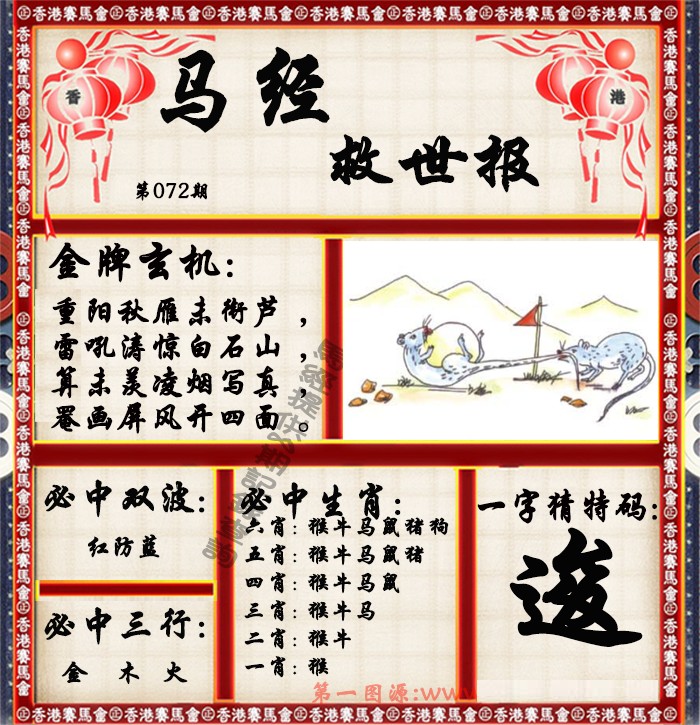 香港賽馬會
香
港
马经
救世报
第072期
金牌玄机:
重阳秋雁未衔芦，
雷吼涛惊白石山，
算未羡凌烟写真，
罨画屏风开四面。
必中双波:
红防蓝
必中三行:
金 木 火
必中生肖:
六肖: 猴牛马鼠猪狗
五肖: 猴牛马鼠猪
四肖: 猴牛马鼠
三肖: 猴牛马
二肖: 猴牛
一肖: 猴
一字猜特码:
逡
第一图源:www